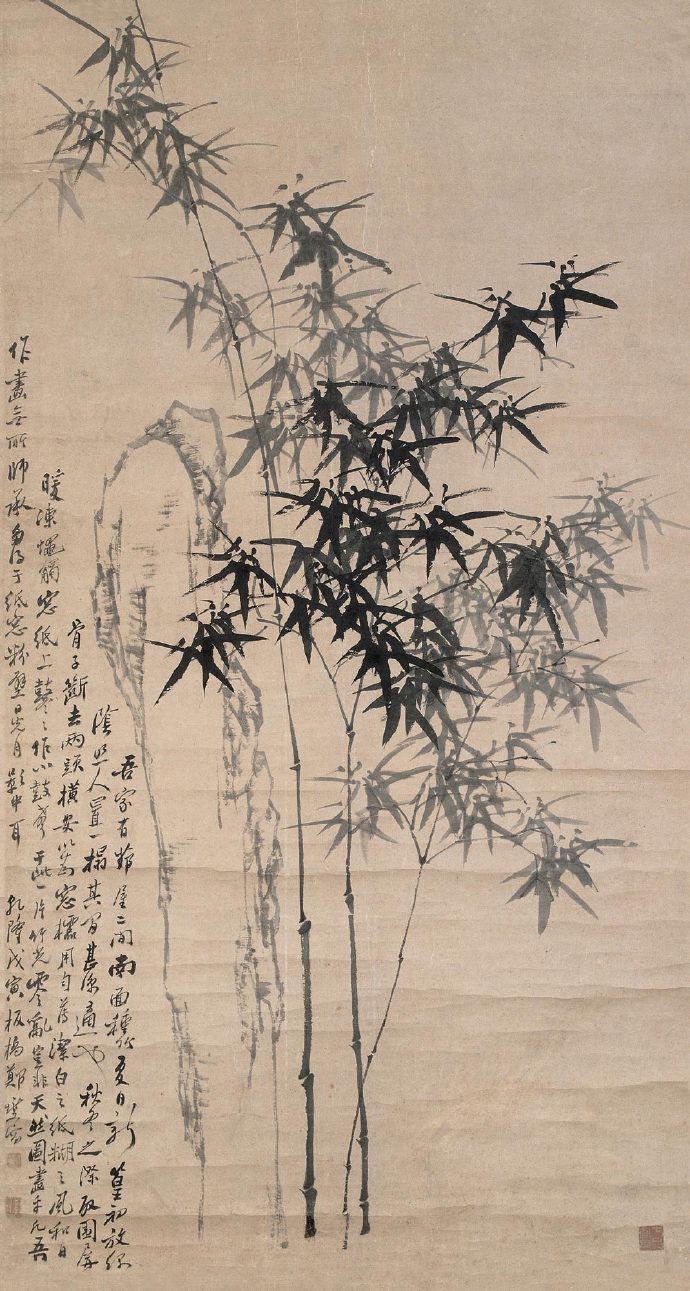 吾家有茆屋二間南面種竹夏日新篁初放綠
蔭照人置一榻其間甚涼適也秋冬之際取圍屏
骨子斷去兩頭橫安以為窗櫺用勻薄潔白之紙糊之風和日
暖凍蠅觸窗紙上鼕々作小鼓聲于此一片竹光零亂豈非天然圖畫乎凡吾
作畫無所師承多得于紙窗粉壁日光月影中耳 乾隆戊寅板橋鄭燮寫